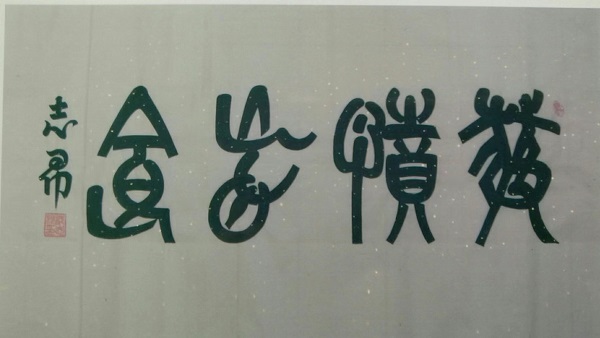 發憤忘食
志昂